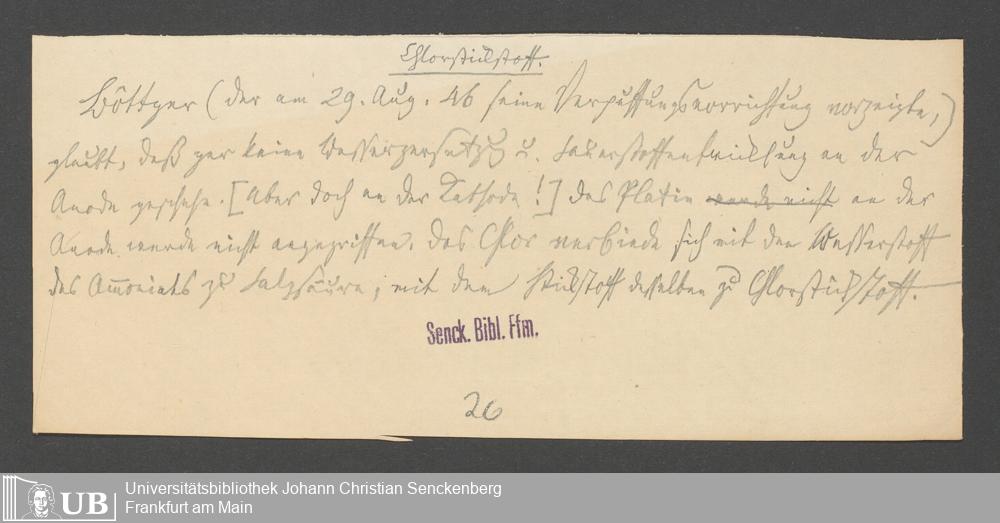 Chlorstickstoff.
Böttger (der am 29. Aug. 46 seine Verpuffungsvorrichtung vorzeigte,)
glaubt, daß gar keine Wasserzersetzg u. Sauerstoffentwicklung an der
Anode geschehe. [Aber doch an der Kathode!] das Platin werde nicht an der
Anode werde nicht angegriffen. das Chlor verbinde sich mit dem Wasserstoff
des Ammoniaks zu Salzsäure, mit dem Stickstoff desselben zu Chlorstickstoff.
Senck. Bibl. Ffm.
26
UB
Universitätsbibliothek Johann Christian Senckenberg
Frankfurt am Main